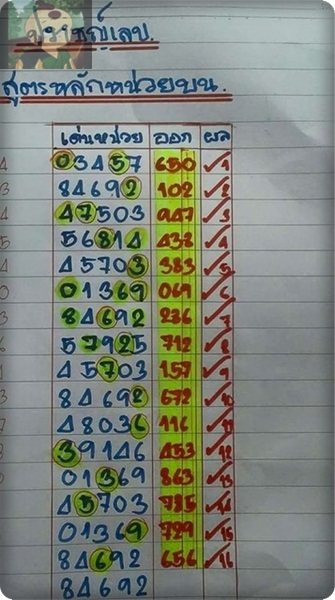 ปราชญ์เลข.
สูตรหลักหน่วยบน.
เด่นหน่วย ออก ผล
03457 650 ✓1
84692 102 ✓2
47503 947 ✓3
56814 438 ✓4
45703 383 ✓5
01369 069 ✓6
84692 236 ✓7
57925 712 ✓8
45703 157 ✓9
84692 672 ✓10
48036 116 ✓11
39146 453 ✓12
01369 863 ✓13
45703 785 ✓14
01369 729 ✓15
84692 656 ✓16
84692